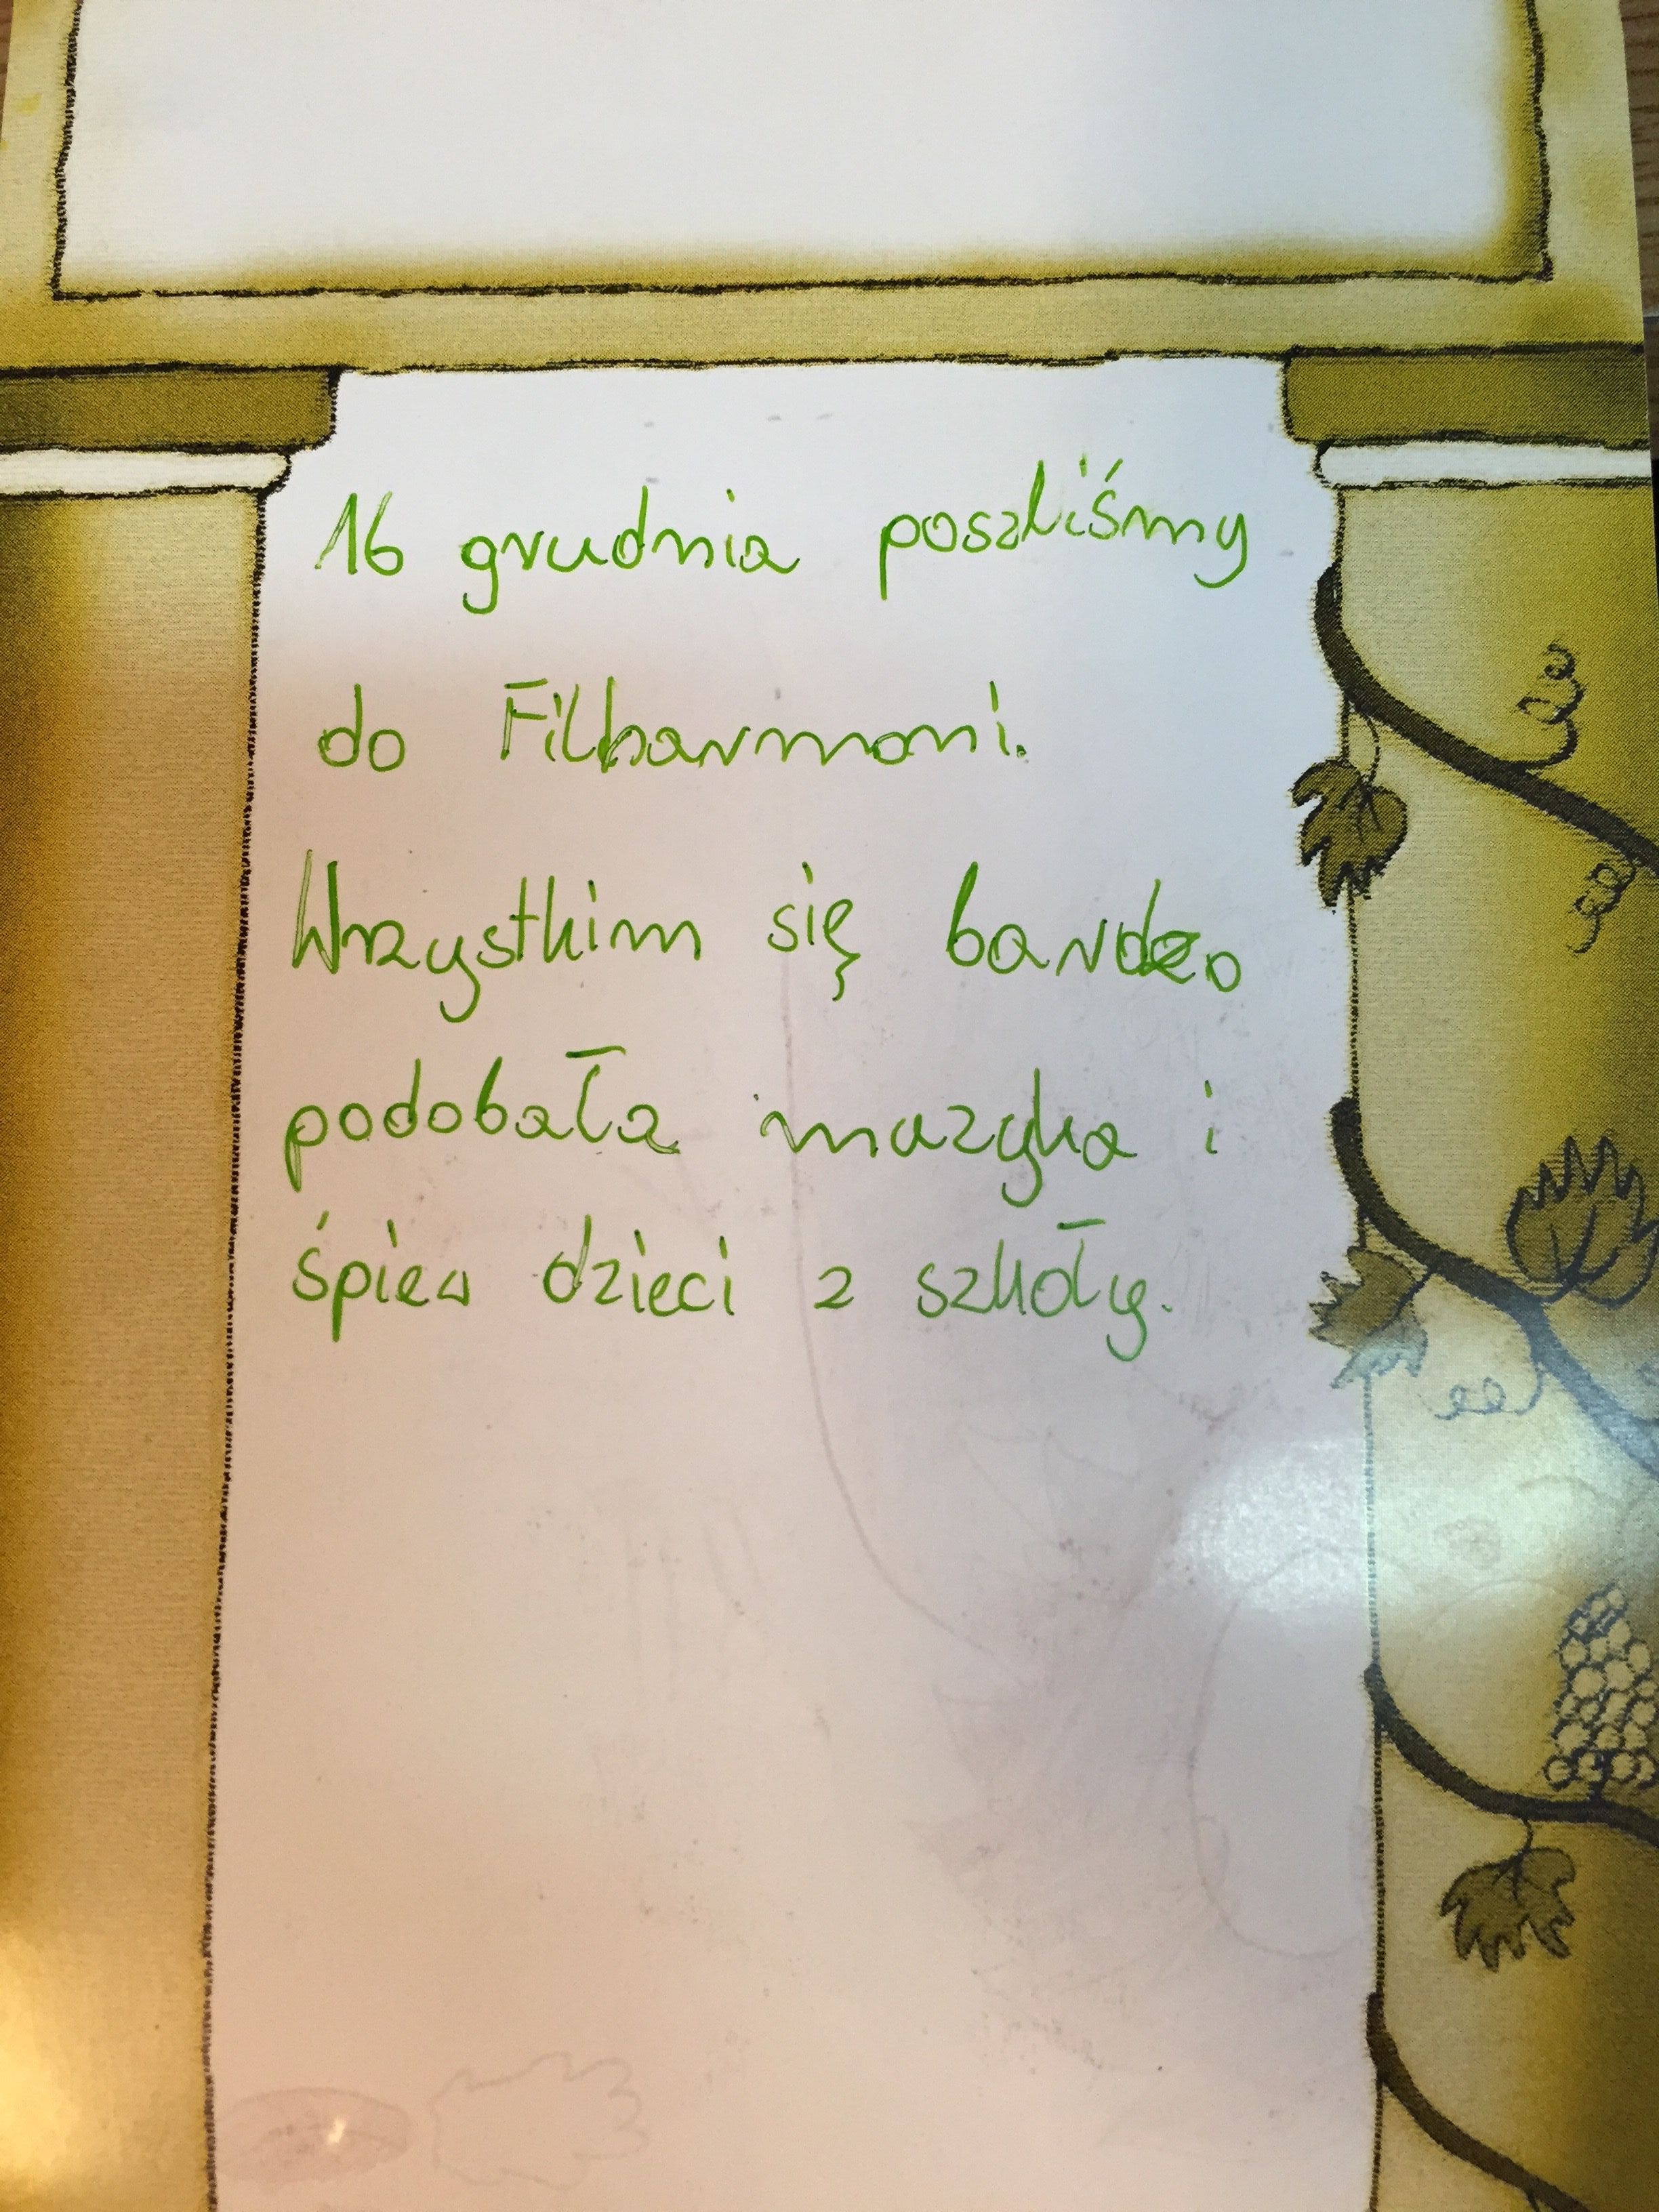 16 grudnia poszliśmy
do Filharmoni.
Wszystkim się bardzo
podobała muzyka i
śpiew dzieci z szkoły.